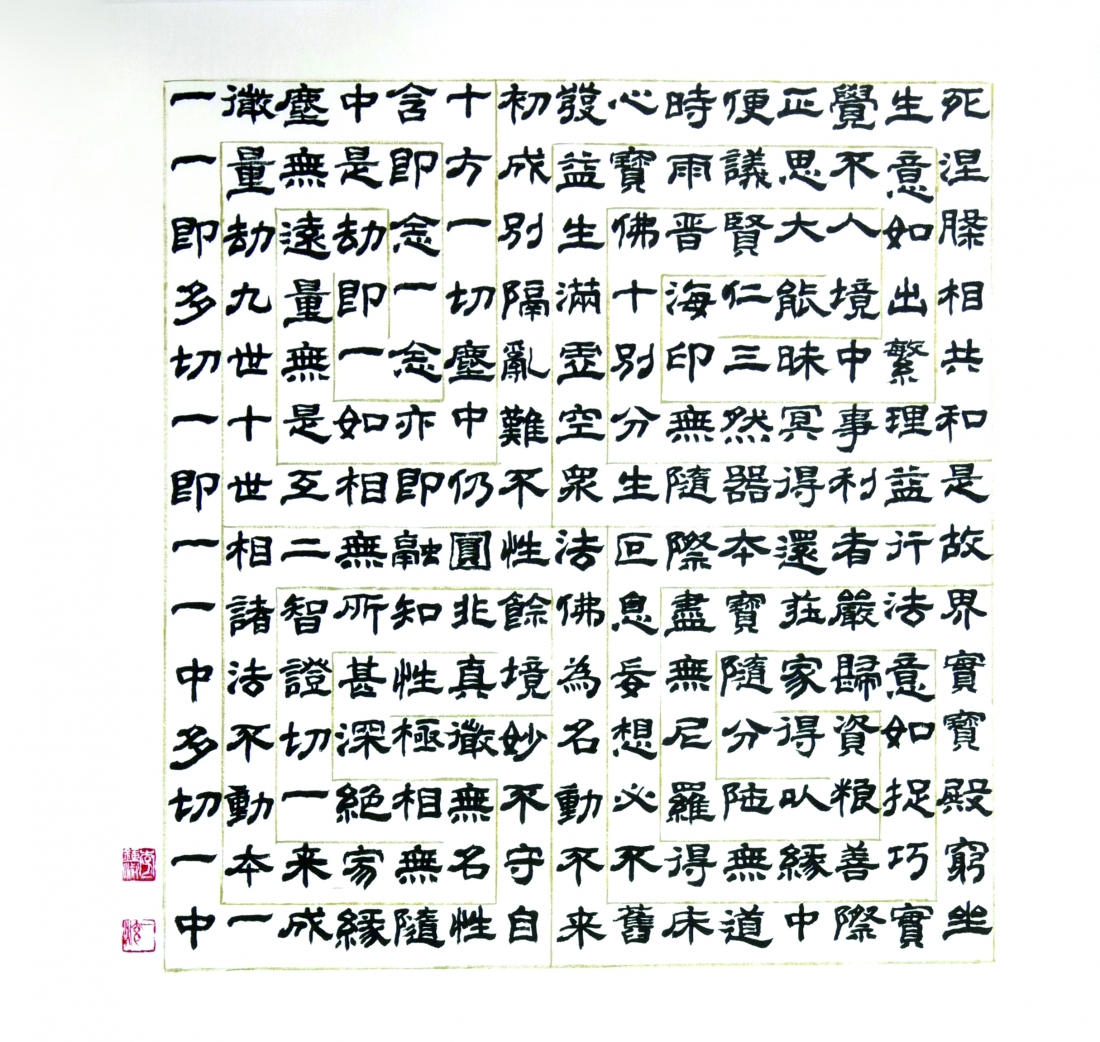 一微塵中含十初發心時便正覺生死
一量無是即方成益寶雨議思不意涅
即劫遠劫念一別生佛普賢大人如槃
多九量即一切隔滿十海仁能境出相
切世無一念塵亂虛別印三昧中繁共
一十是如亦中難空分無然冥事理和
即世互相即仍不眾生隨器得利益是
一相二無融圓性法叵際本還者行故
一諸智所知非餘佛息盡寶莊嚴法界
中法證甚性真境為妄無隨家歸意實
多不切深極微妙名想尼分得資如寶
切動一絕相無不動必羅陀以粮捉殿
一本来寂無名守不不得無緣善巧窮
中一成緣隨性自来舊床道中際實坐